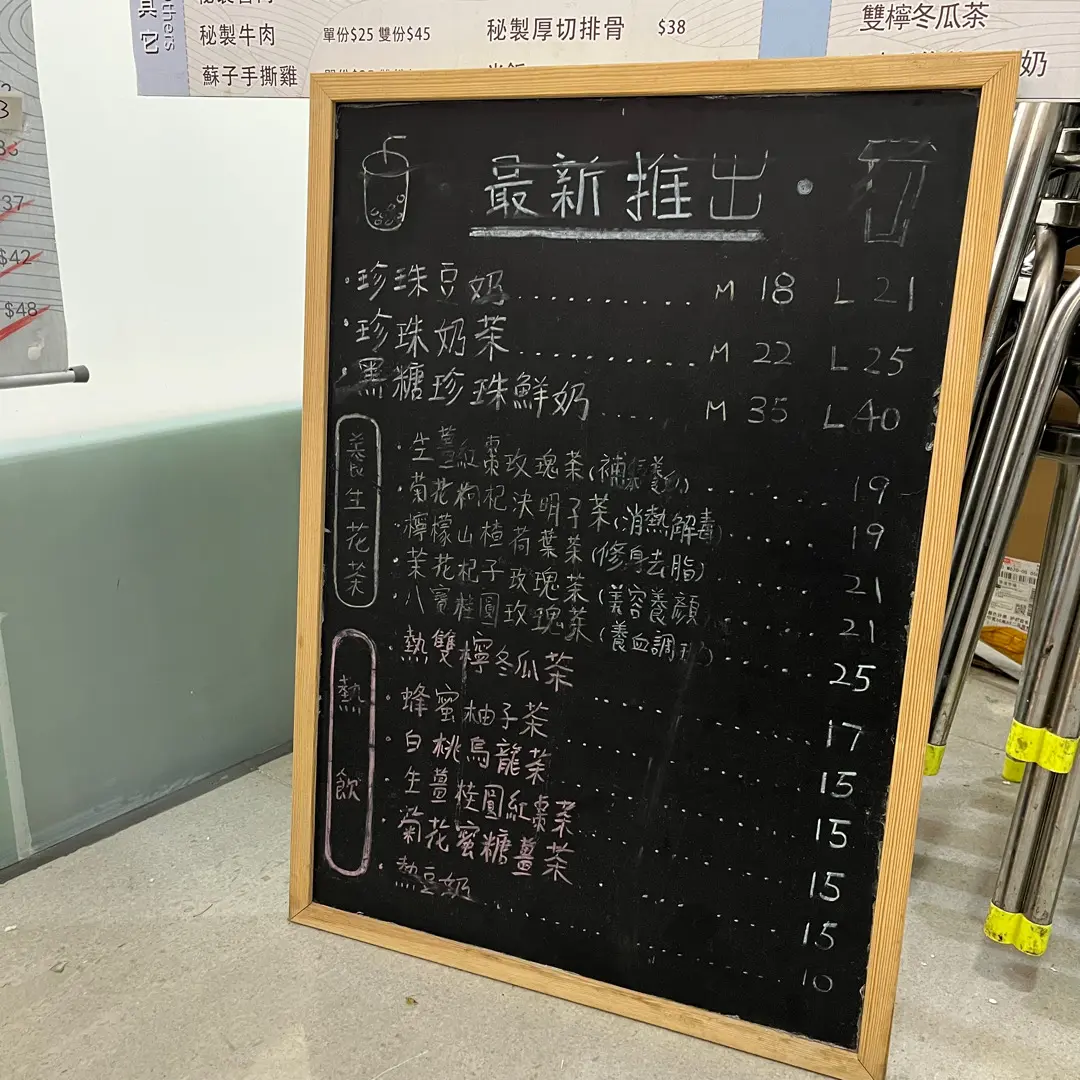 其它
thers
秘製牛肉 單份$25 雙份$45 秘製厚切排骨 $38
蘇子手撕雞
雙檸冬瓜茶
奶
37
$42
$48
最新推出
·珍珠豆奶........... M 18 L 21
·珍珠奶茶........... M 22 L 25
·黑糖珍珠鮮奶.... M 35 L 40
養生花茶
·生薑紅棗玫瑰茶 19
·菊花枸杞決明子茶(消熱解毒)..... 19
·檸檬山楂荷葉茶(修身去脂)..... 21
·茉花杞子玫瑰茶(美容養顏)..... 21
·八寶桂圓玫瑰茶(養血調 25
熱飲
·熱雙檸冬瓜茶 17
·蜂蜜柚子茶 15
·白桃烏龍茶 15
·生薑桂圓紅棗茶 15
·菊花蜜糖薑茶 15
·熱豆奶 10